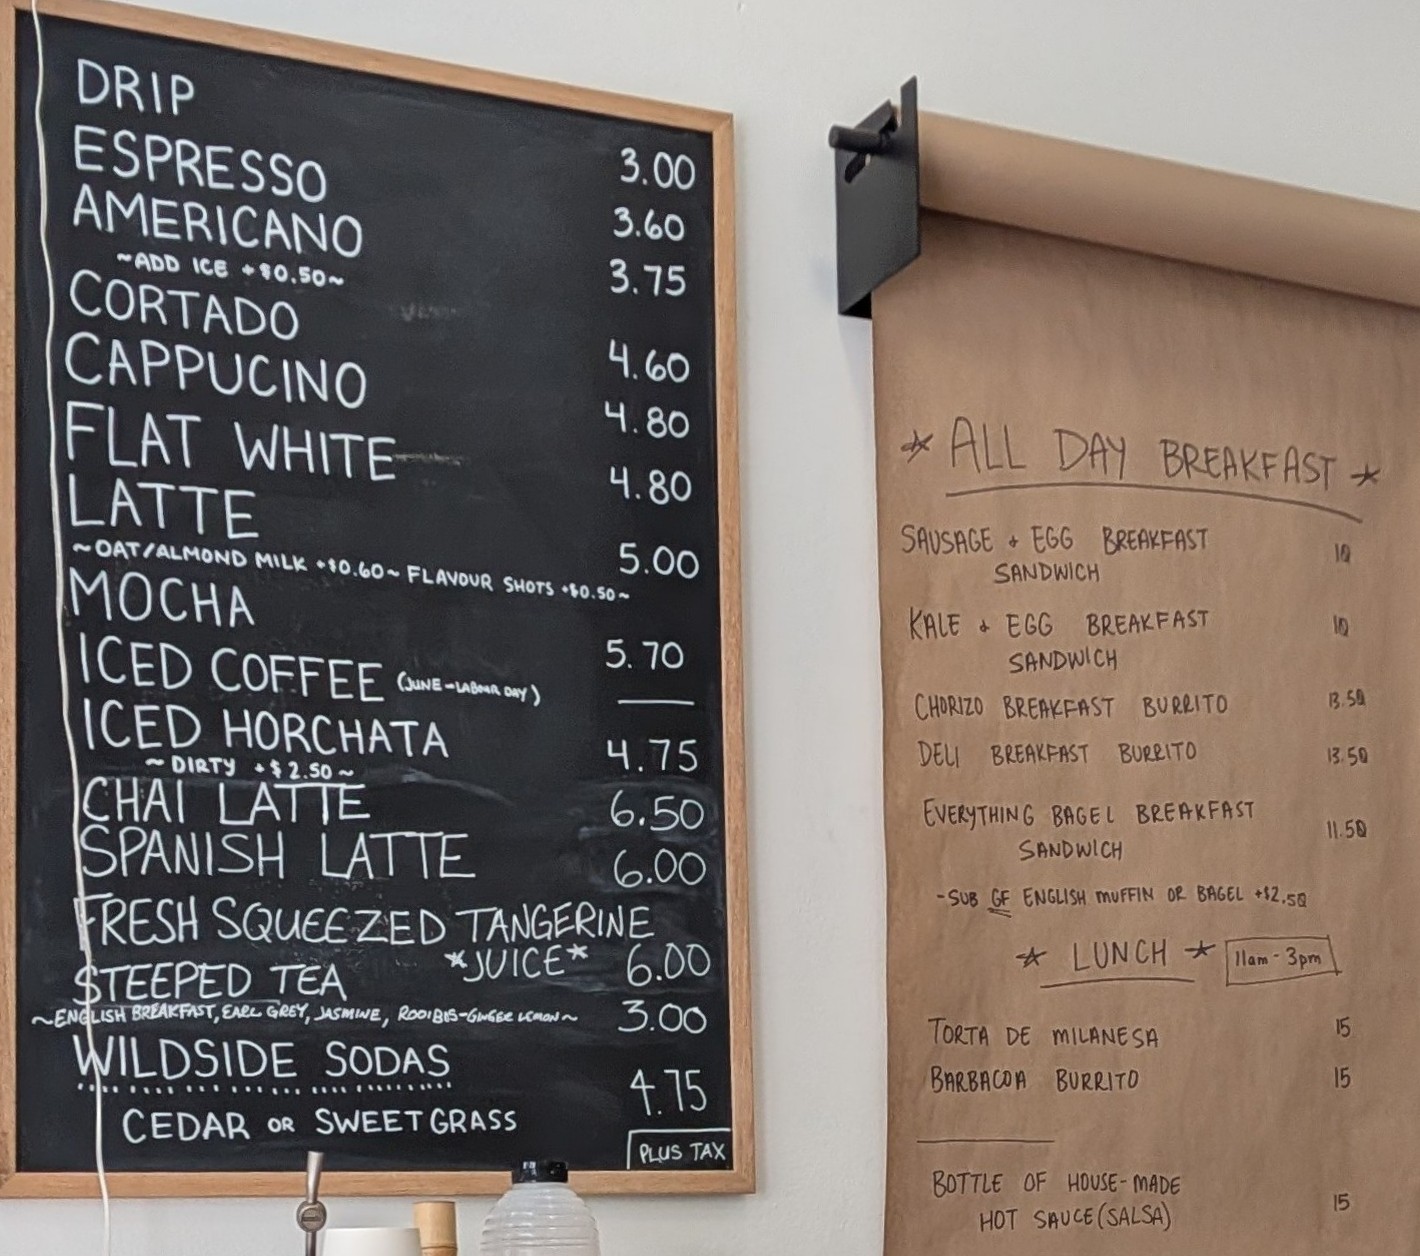 DRIP 3.00
ESPRESSO 3.60
AMERICANO 3.75
~ADD ICE +$0.50~
CORTADO 4.60
CAPPUCINO 4.80
FLAT WHITE 4.80
LATTE 5.00
~OAT/ALMOND MILK +$0.60~ FLAVOUR SHOTS +$0.50~
MOCHA 5.70
ICED COFFEE (JUNE-LABOUR DAY) ——
ICED HORCHATA 4.75
~DIRTY +$2.50~
CHAI LATTE 6.50
SPANISH LATTE 6.00
FRESH SQUEEZED TANGERINE
*JUICE* 6.00
STEEPED TEA 3.00
~ENGLISH BREAKFAST, EARL GREY, JASMINE, ROOIBIS-GINGER LEMON~
WILDSIDE SODAS 4.75
CEDAR OR SWEETGRASS
PLUS TAX
* ALL DAY BREAKFAST *
SAUSAGE + EGG BREAKFAST 10
SANDWICH
KALE + EGG BREAKFAST 10
SANDWICH
CHORIZO BREAKFAST BURRITO 13.50
DELI BREAKFAST BURRITO 13.50
EVERYTHING BAGEL BREAKFAST 11.50
SANDWICH
-SUB GF ENGLISH MUFFIN OR BAGEL +$2.50
* LUNCH * 11am-3pm
TORTA DE MILANESA 15
BARBACOA BURRITO 15
BOTTLE OF HOUSE-MADE 15
HOT SAUCE (SALSA)